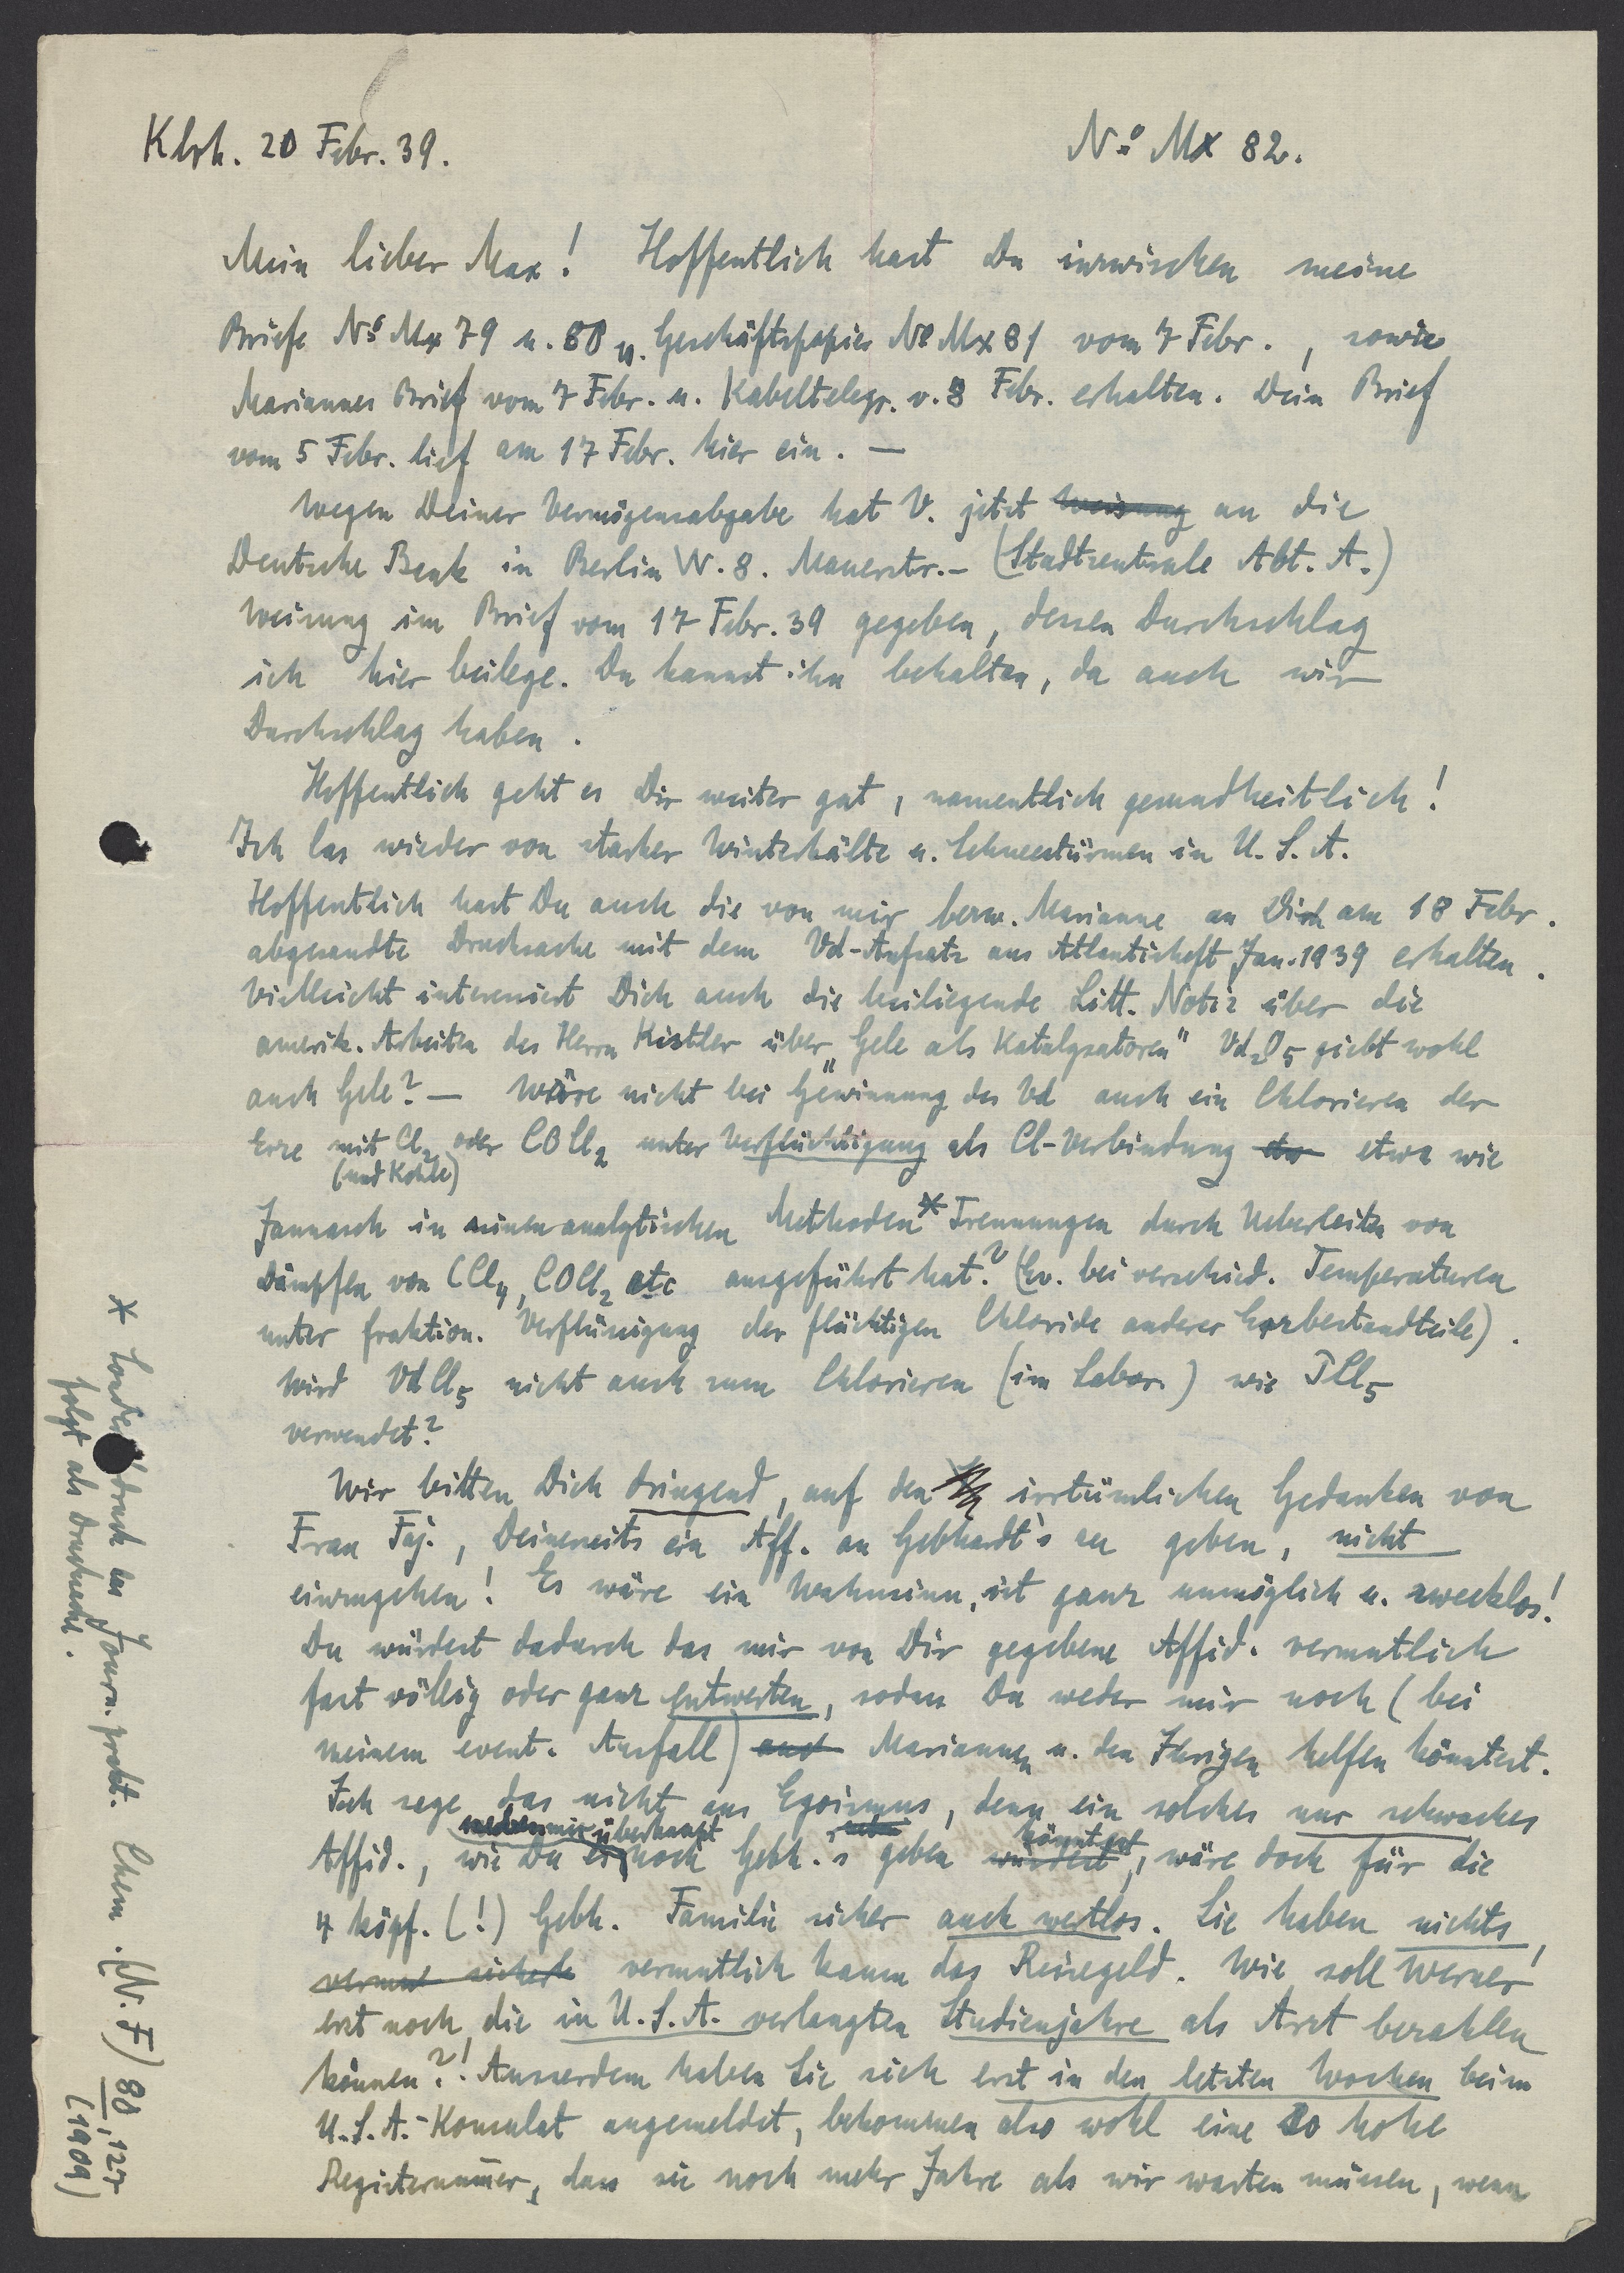 Klrh. 20 Febr. 39.
No Mx 82.
Mein lieber Max! Hoffentlich hast Du inzwischen meine
Briefe No Mx 79 u. 80 u. Geschäftspapier No Mx 81 vom 7 Febr., sowie
Mariannes Brief vom 7 Febr. u. Kabeltelegr. v. 8 Febr. erhalten. Dein Brief
vom 5 Febr. lief am 17 Febr. hier ein. —
Wegen Deiner Vermögensabgabe hat V. jetzt Weisung an die
Deutsche Bank in Berlin W. 8. Mauerstr.- (Stadtzentrale Abt. A.)
Weisung im Brief vom 17 Febr. 39 gegeben, dessen Durchschlag
ich hier beilege. Du kannst ihn behalten, da auch wir
Durchschlag haben.
Hoffentlich geht es Dir weiter gut, namentlich gesundheitlich!
Ich las wieder von starker Winterkälte u. Schneestürmen in U. S. A.
Hoffentlich hast Du auch die von mir bezw. Marianne an Dich am 18 Febr.
abgesandte Drucksache mit dem Vd-Aufsatz aus Atlantisheft Jan. 1939 erhalten.
Vielleicht interessiert Dich auch die beiliegende Litt. Notiz über die
amerik. Arbeiten des Herrn Kistler über „Gele als Katalysatoren" Vd2O5 giebt wohl
auch Gele? — Wäre nicht bei Gewinnung des Vd auch ein Chlorieren der
Erze mit Cl2 oder COCl2 unter Verflüchtigung als Cl-Verbindung etw etwa wie
(und Kohle)
Jannasch in seinen analytischen Methoden* Trennungen durch Ueberleiten von
Dämpfen von CCl4, COCl2 etc ausgeführt hat? (Ev. bei verschied. Temperaturen
unter fraktion. Verflüssigung der flüchtigen Chloride anderer Erzbestandteile).
Wird VdCl5 nicht auch zum Chlorieren (im Labor.) wie PCl5
verwendet?
Wir bitten Dich dringend, auf den irrtümlichen Gedanken von
Frau Faj., Deinerseits ein Aff. an Gebhardt's zu geben, nicht
einzugehen! Es wäre ein Wahnsinn, ist ganz unmöglich u. zwecklos!
Du würdest dadurch das mir von Dir gegebene Affid. vermutlich
fast völlig oder ganz entwerten, sodass Du weder mir noch (bei
meinem event. Ausfall) auch Mariannen u. den Ihrigen helfen könntest.
Ich sage das nicht aus Egoismus, denn ein solches nur schwaches
neben mir überhaupt könntest
Affid., wie Du es noch Gebh.'s geben würdest, wäre doch für die
4 köpf. (!) Gebh. Familie sicher auch wertlos. Sie haben nichts,
vermutlich kaum das Reisegeld. Wie soll Werner
erst noch die in U. S. A. verlangten Studienjahre als Arzt bezahlen
können?! Ausserdem haben Sie sich erst in den letzten Wochen beim
U. S. A.-Konsulat angemeldet, bekommen also wohl eine so hohe
Registernummer, dass sie noch mehr Jahre als wir warten müssen, wenn
* Sonderabdruck im Journ. prakt. Chem. (N. F) 80, 127
(1909)
folgt als Drucksache.